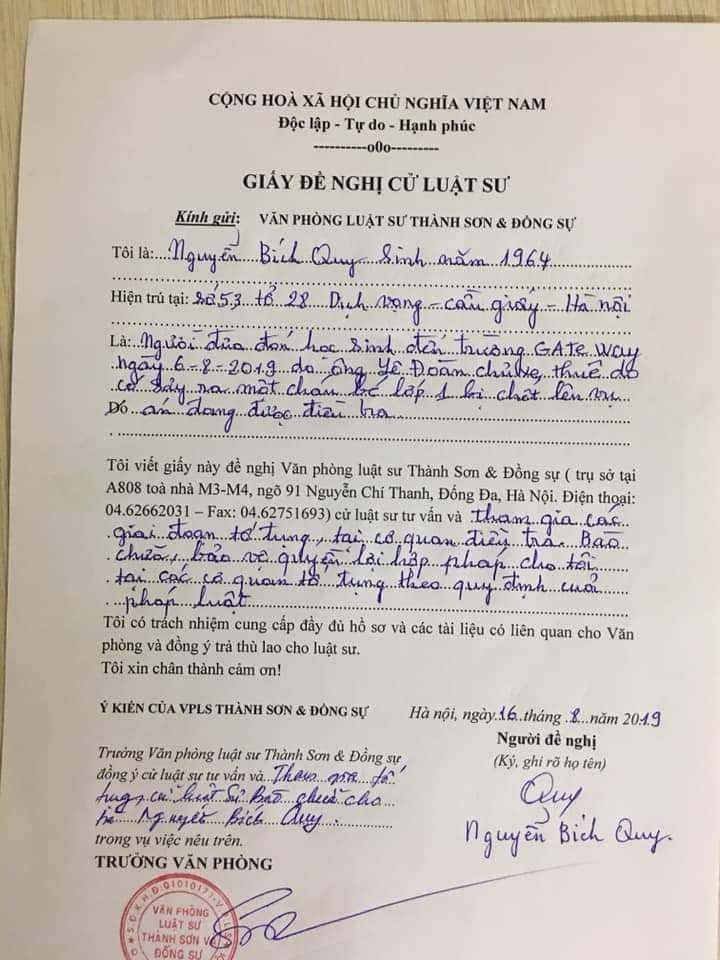 CỘNG HOÀ XÃ HỘI CHỦ NGHĨA VIỆT NAM
Độc lập - Tự do - Hạnh phúc
----------o0o---------
GIẤY ĐỀ NGHỊ CỬ LUẬT SƯ
Kính gửi: VĂN PHÒNG LUẬT SƯ THÀNH SƠN & ĐỒNG SỰ
Tôi là: Nguyễn Bích Quy sinh năm 1964
Hiện trú tại: số 53 tổ 28 Dịch vọng - cầu giấy - Hà nội
Là: Người đưa đón học sinh đến trường GATE Way
ngày 6-8-2019 do ông Yê Đoàn chủ xe, thuê do
có sảy ra một cháu bé lớp 1 bị chết lên vụ
Do án đang được điều tra
Tôi viết giấy này đề nghị Văn phòng luật sư Thành Sơn & Đồng sự ( trụ sở tại
A808 toà nhà M3-M4, ngõ 91 Nguyễn Chí Thanh, Đống Đa, Hà Nội. Điện thoại:
04.62662031 – Fax: 04.62751693) cử luật sư tư vấn và tham gia các
giai đoạn tố tụng, tại cơ quan điều tra. Bào
chữa, bảo vệ quyền lợi hợp pháp cho tôi
tại các cơ quan tố tụng theo quy định cuả
pháp luật
Tôi có trách nhiệm cung cấp đầy đủ hồ sơ và các tài liệu có liên quan cho Văn
phòng và đồng ý trả thù lao cho luật sư.
Tôi xin chân thành cảm ơn!
Ý KIẾN CỦA VPLS THÀNH SƠN & ĐỒNG SỰ
Trưởng Văn phòng luật sư Thành Sơn & Đồng sự
đồng ý cử luật sư tư vấn và Tham gia tố
tụng cử luật Sư Bào chữa cho
bà Nguyễn Bích Quy.
trong vụ việc nêu trên.
TRƯỞNG VĂN PHÒNG
Hà nội, ngày 16 tháng 8 năm 2019
Người đề nghị
(Ký, ghi rõ họ tên)
Quy
Nguyễn Bích Quy.
VĂN PHÒNG
LUẬT SƯ
THÀNH SƠN VÀ
ĐỒNG SỰ